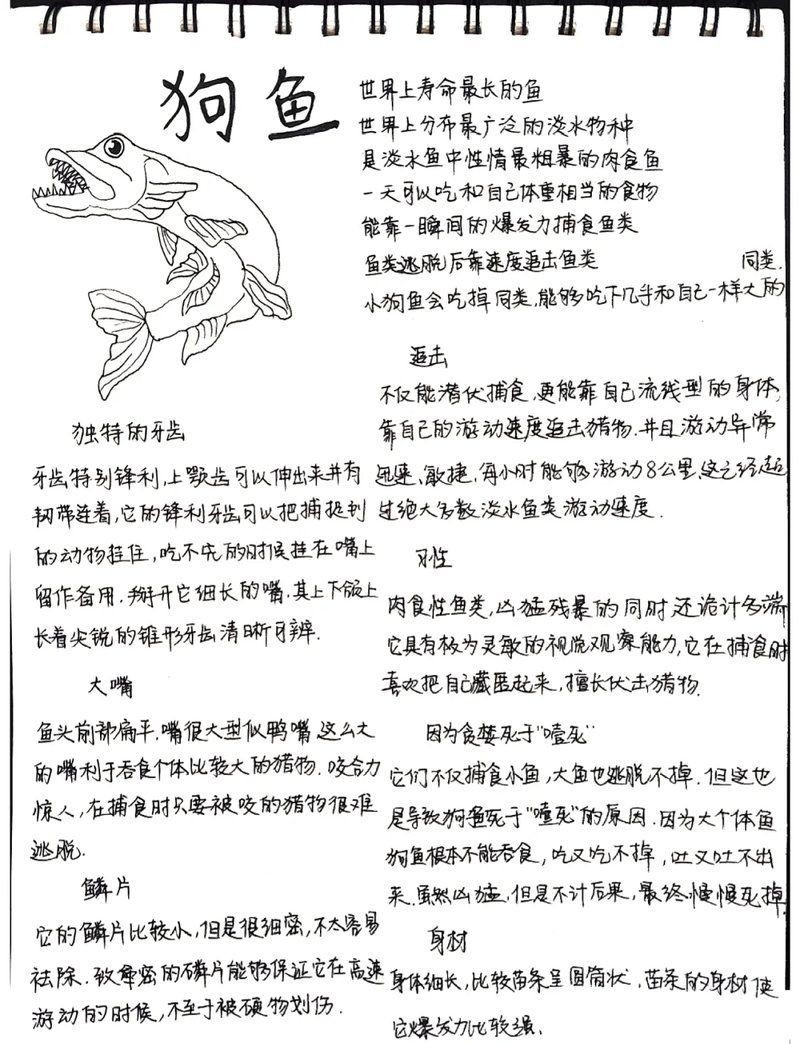 狗鱼
世界上寿命最长的鱼
世界上分布最广泛的淡水物种
是淡水鱼中性情最粗暴的肉食鱼
一天可以吃和自己体重相当的食物
能靠一瞬间的爆发力捕食鱼类
鱼类逃脱后靠速度追击鱼类
同类.
小狗鱼会吃掉同类,能够吃下几乎和自己一样大的
独特的牙齿
牙齿特别锋利,上颚齿可以伸出来并有
韧带连着,它的锋利牙齿可以把捕捉到
的动物挂住,吃不完的时候挂在嘴上
留作备用.掰开它细长的嘴.其上下颌上
长着尖锐的锥形牙齿清晰可辨.
大嘴
鱼头前部扁平.嘴很大型似鸭嘴.这么大
的嘴利于吞食个体比较大的猎物.咬合力
惊人,在捕食时只要被咬的猎物很难
逃脱.
鳞片
它的鳞片比较小,但是很细密,不太容易
祛除.致密的磷片能够保证它在高速
游动的时候,不至于被硬物划伤.
追击
不仅能潜伏捕食,更能靠自己流线型的身体,
靠自己的游动速度追击猎物.并且游动异常
迅速、敏捷,每小时能够游动8公里.这已经超
过绝大多数淡水鱼类游动速度.
习性
肉食性鱼类,凶猛残暴的同时还诡计多端
它具有极为灵敏的视觉观察能力,它在捕食时
喜欢把自己藏匿起来,擅长伏击猎物.
因为贪婪死于"噎死"
它们不仅捕食小鱼,大鱼也逃脱不掉.但这也
是导致狗鱼死于"噎死"的原因.因为大个体鱼
狗鱼根本不能吞食,吃又吃不掉,吐又吐不出
来.虽然凶猛,但是不计后果,最终慢慢死掉.
身材
身体细长,比较苗条呈圆筒状.苗条的身材使
它爆发力比较强.